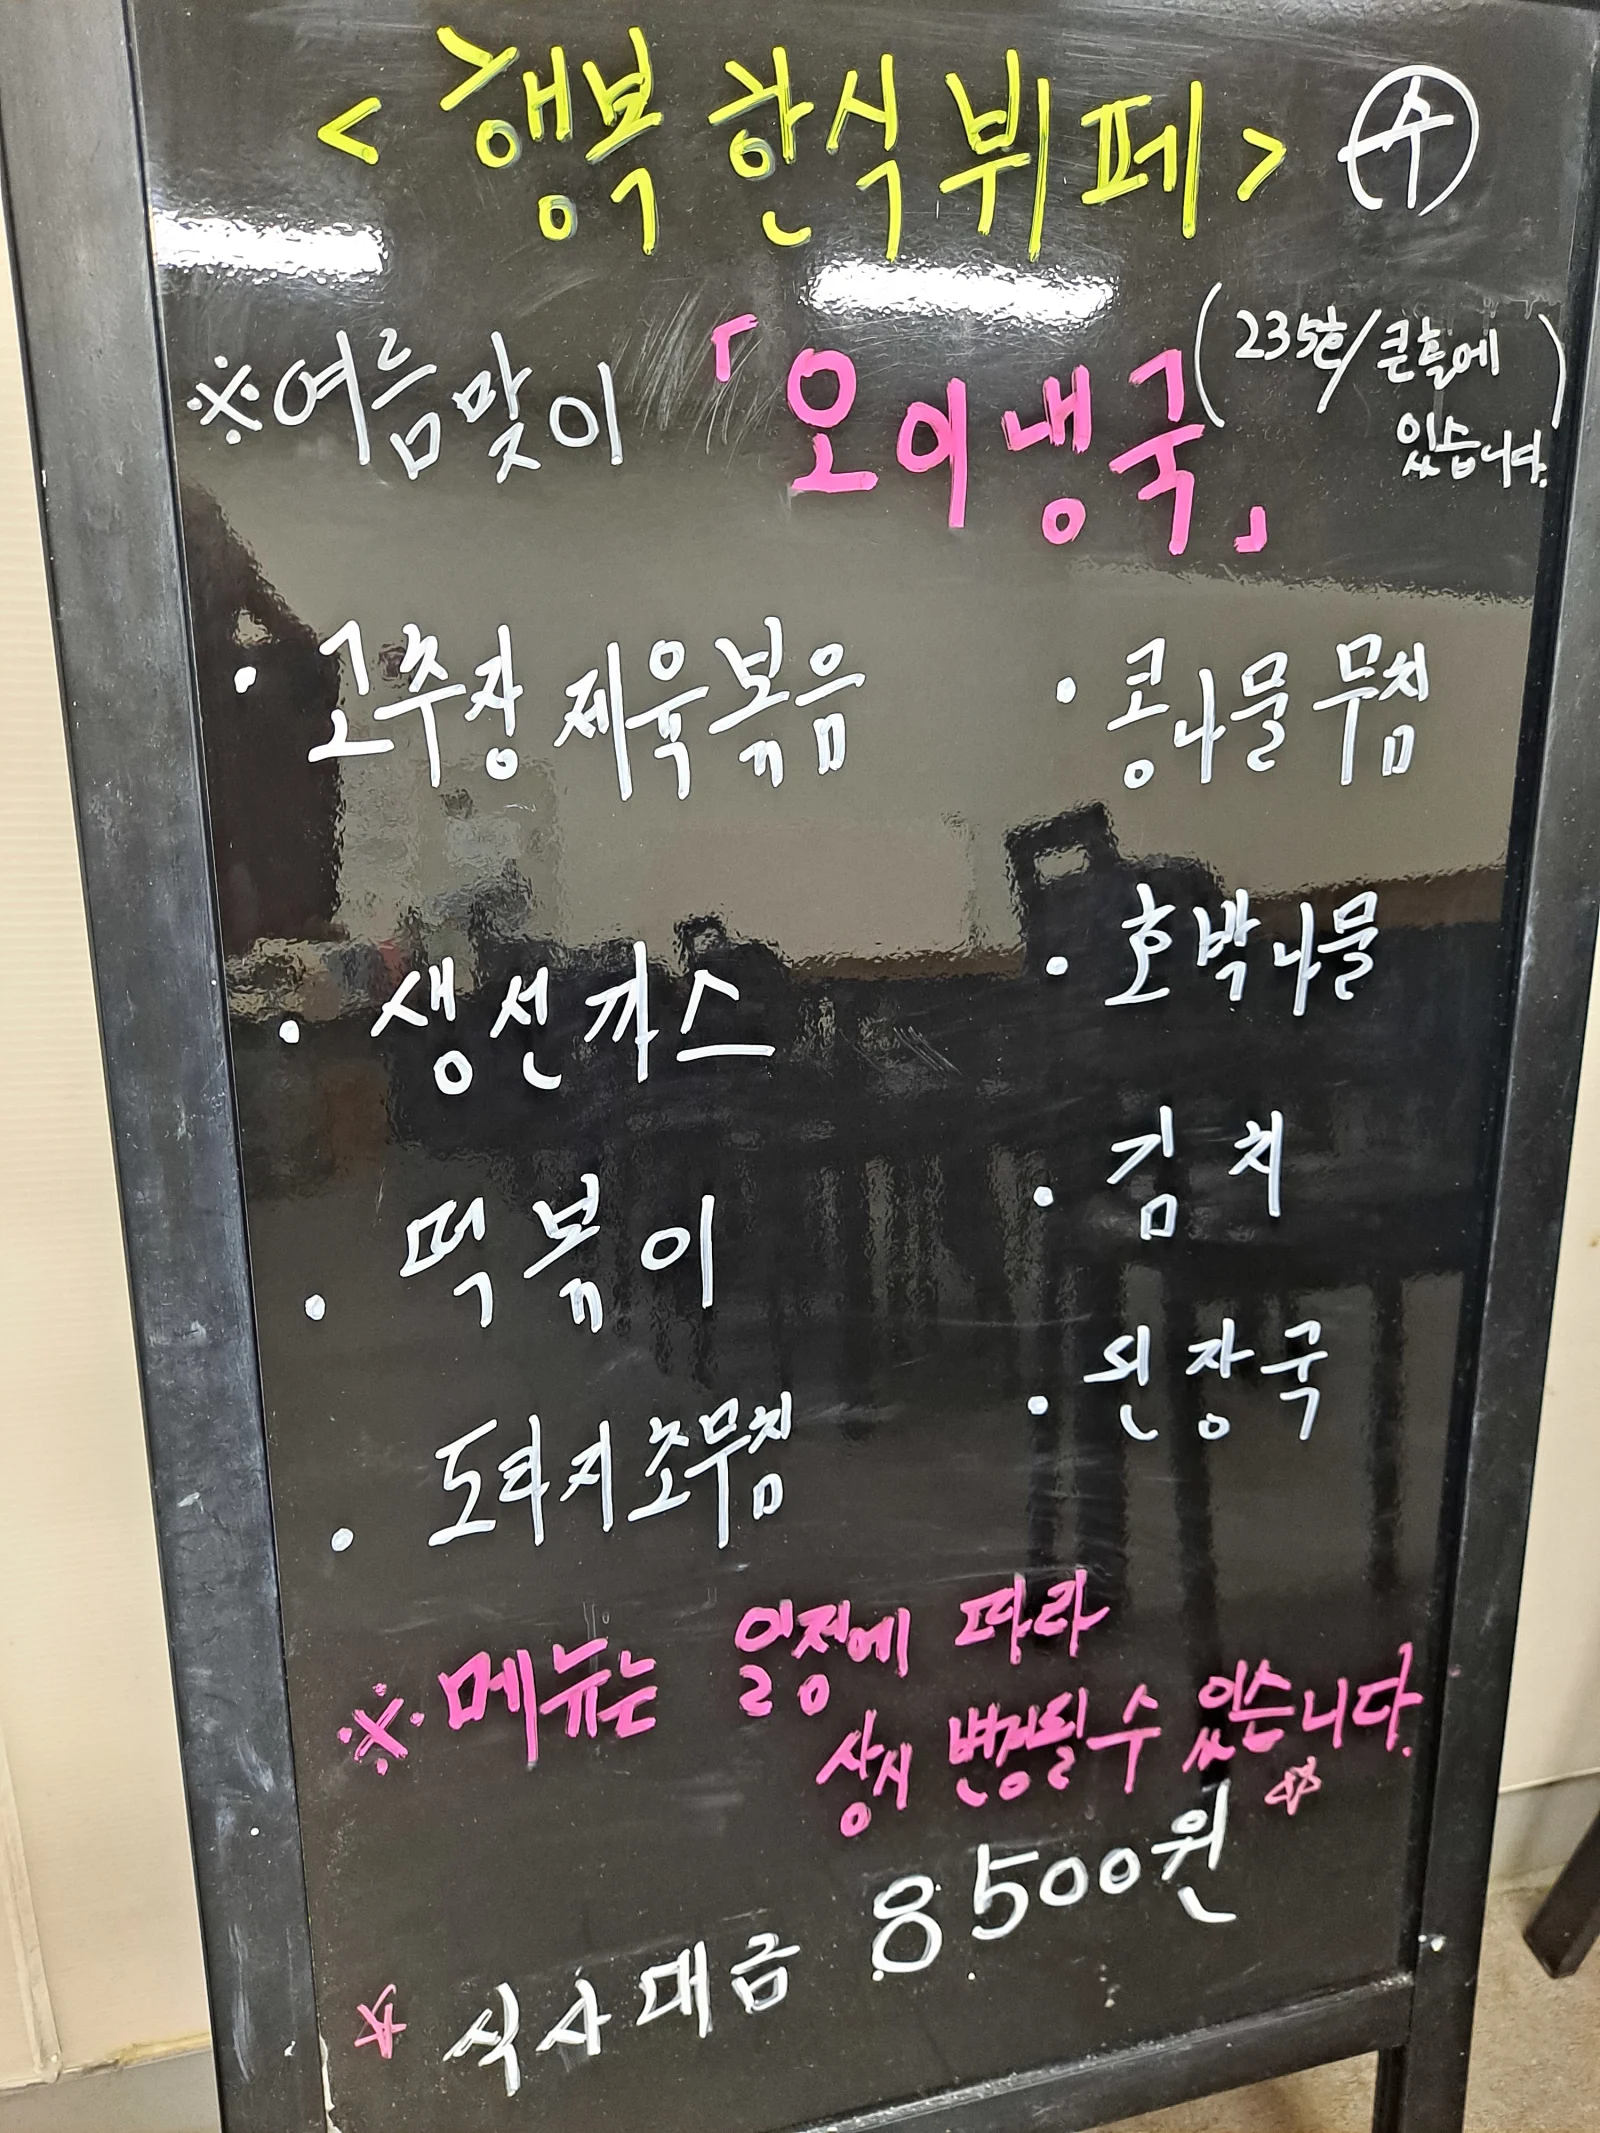 <행복 한식 뷔페> 수
※여름맞이 「오이냉국」 (235호/큰홀에
있습니다.)
· 고추장 제육볶음
· 생선까스
· 떡볶이
· 도라지초무침
· 콩나물 무침
· 호박나물
· 김치
· 된장국
※메뉴는 일정에 따라
상시 변경될 수 있습니다.
☆
☆ 식사대금 8500원